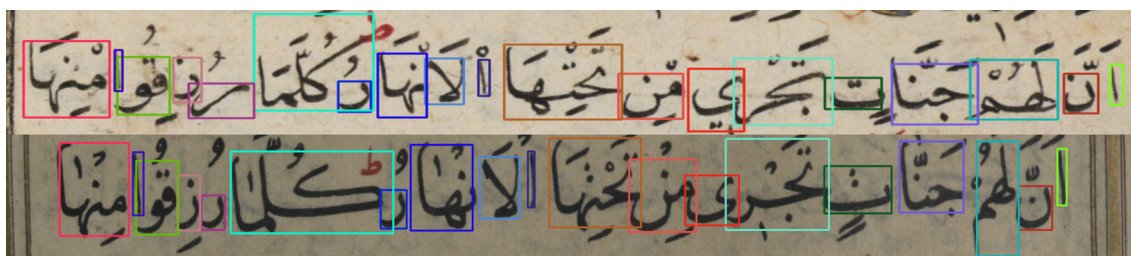 اَنَّ لَهُمْ جَنَّاتٍ تَجْرِي مِنْ تَحْتِهَا اْلَانْهَارُ كُلَّمَا رُزِقُوا مِنْهَا
اَنَّ لَهُمْ جَنَّاتٍ تَجْرِى مِنْ تَحْتِهَا اْلَانْهَارُ كُلَّمَا رُزِقُوا مِنْهَا